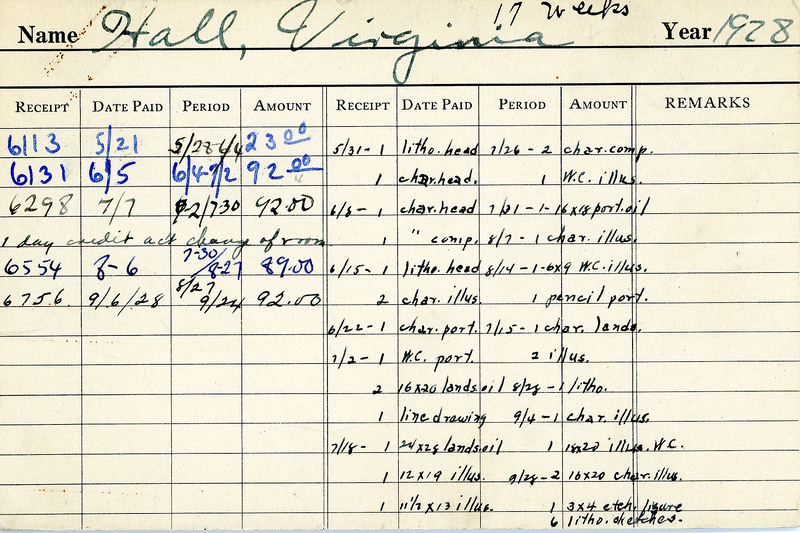 17 weeks
Name Hall, Virginia Year 1928
RECEIPT DATE PAID PERIOD AMOUNT RECEIPT DATE PAID PERIOD AMOUNT REMARKS
6113 5/21 5/28-6/4 23 00 5/31-1 litho. head 7/26-2 char. comp.
6131 6/5 6/4-7/2 92 00 1 char. head. 1 W.C. illus.
6298 7/7 7/30 92.00 6/8-1 char. head 7/31-1-16x18 port. oil
1 day credit act change of room 1 " comp. 8/7-1 char. illus.
6554 8-6 7-30/8-27 89.00 6/15-1 litho. head 8/14-1-6x9 W.C. illus.
6756 9/6/28 8/27 9/24 92.00 2 char. illus. 1 pencil port.
6/22-1 char. port. 7/15-1 char. lands.
7/2-1 W.C. port. 2 illus.
2 16x20 lands oil 8/28-1 litho.
1 line drawing 9/4-1 char. illus.
7/18-1 24x28 lands. oil 1 18x20 illus. W.C.
1 12x19 illus. 9/28-2 16x20 char. illus.
1 11½x13 illus. 1 3x4 etch. figure
6 litho. sketches.